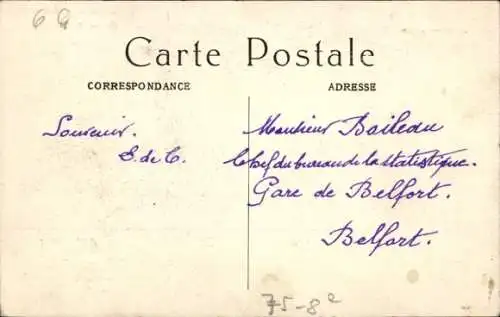 6 G
Carte Postale
CORRESPONDANCE
ADRESSE
Souvenir.
E. de C.
Monsieur Boileau
chef du bureau de la statistique.
Gare de Belfort.
Belfort.
75-8e